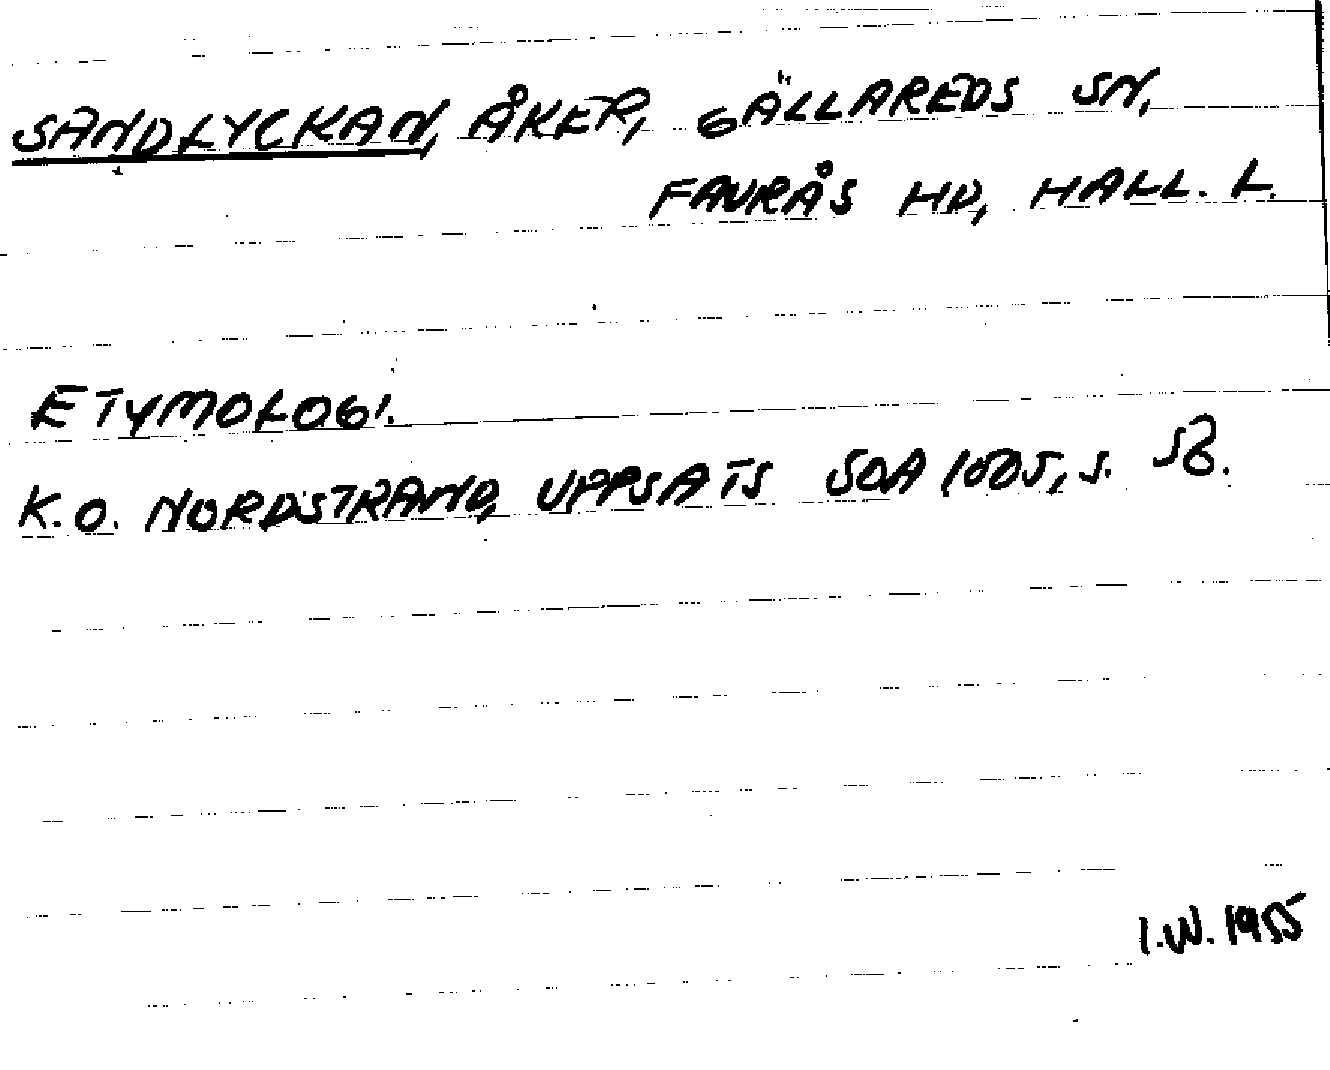 SANDLYCKAN, ÅKER, GÄLLAREDS SN,
FAURÅS HD, HALL. L.
ETYMOLOGI.
K.O. NORDSTRAND, UPPSATS SOA 1005, s. 58.
I.W. 1955